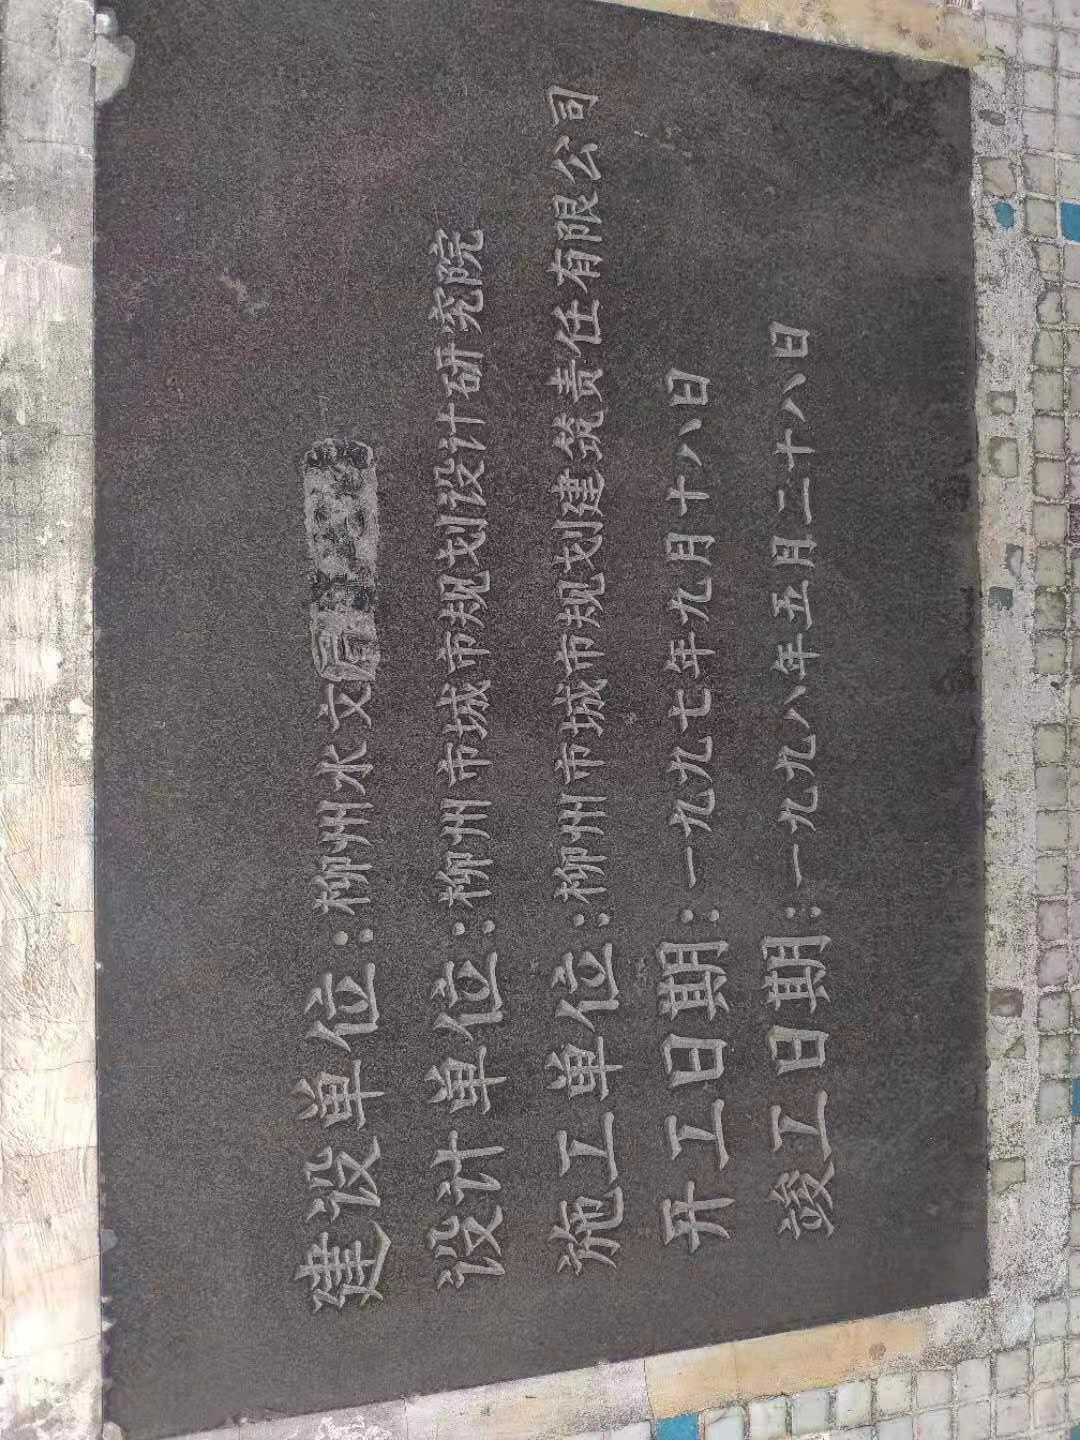 建设单位:柳州水文
设计单位:柳州市城市规划设计研究院
施工单位:柳州市城市规划建筑责任有限公司
开工日期:一九九七年九月十八日
竣工日期:一九九八年五月二十八日